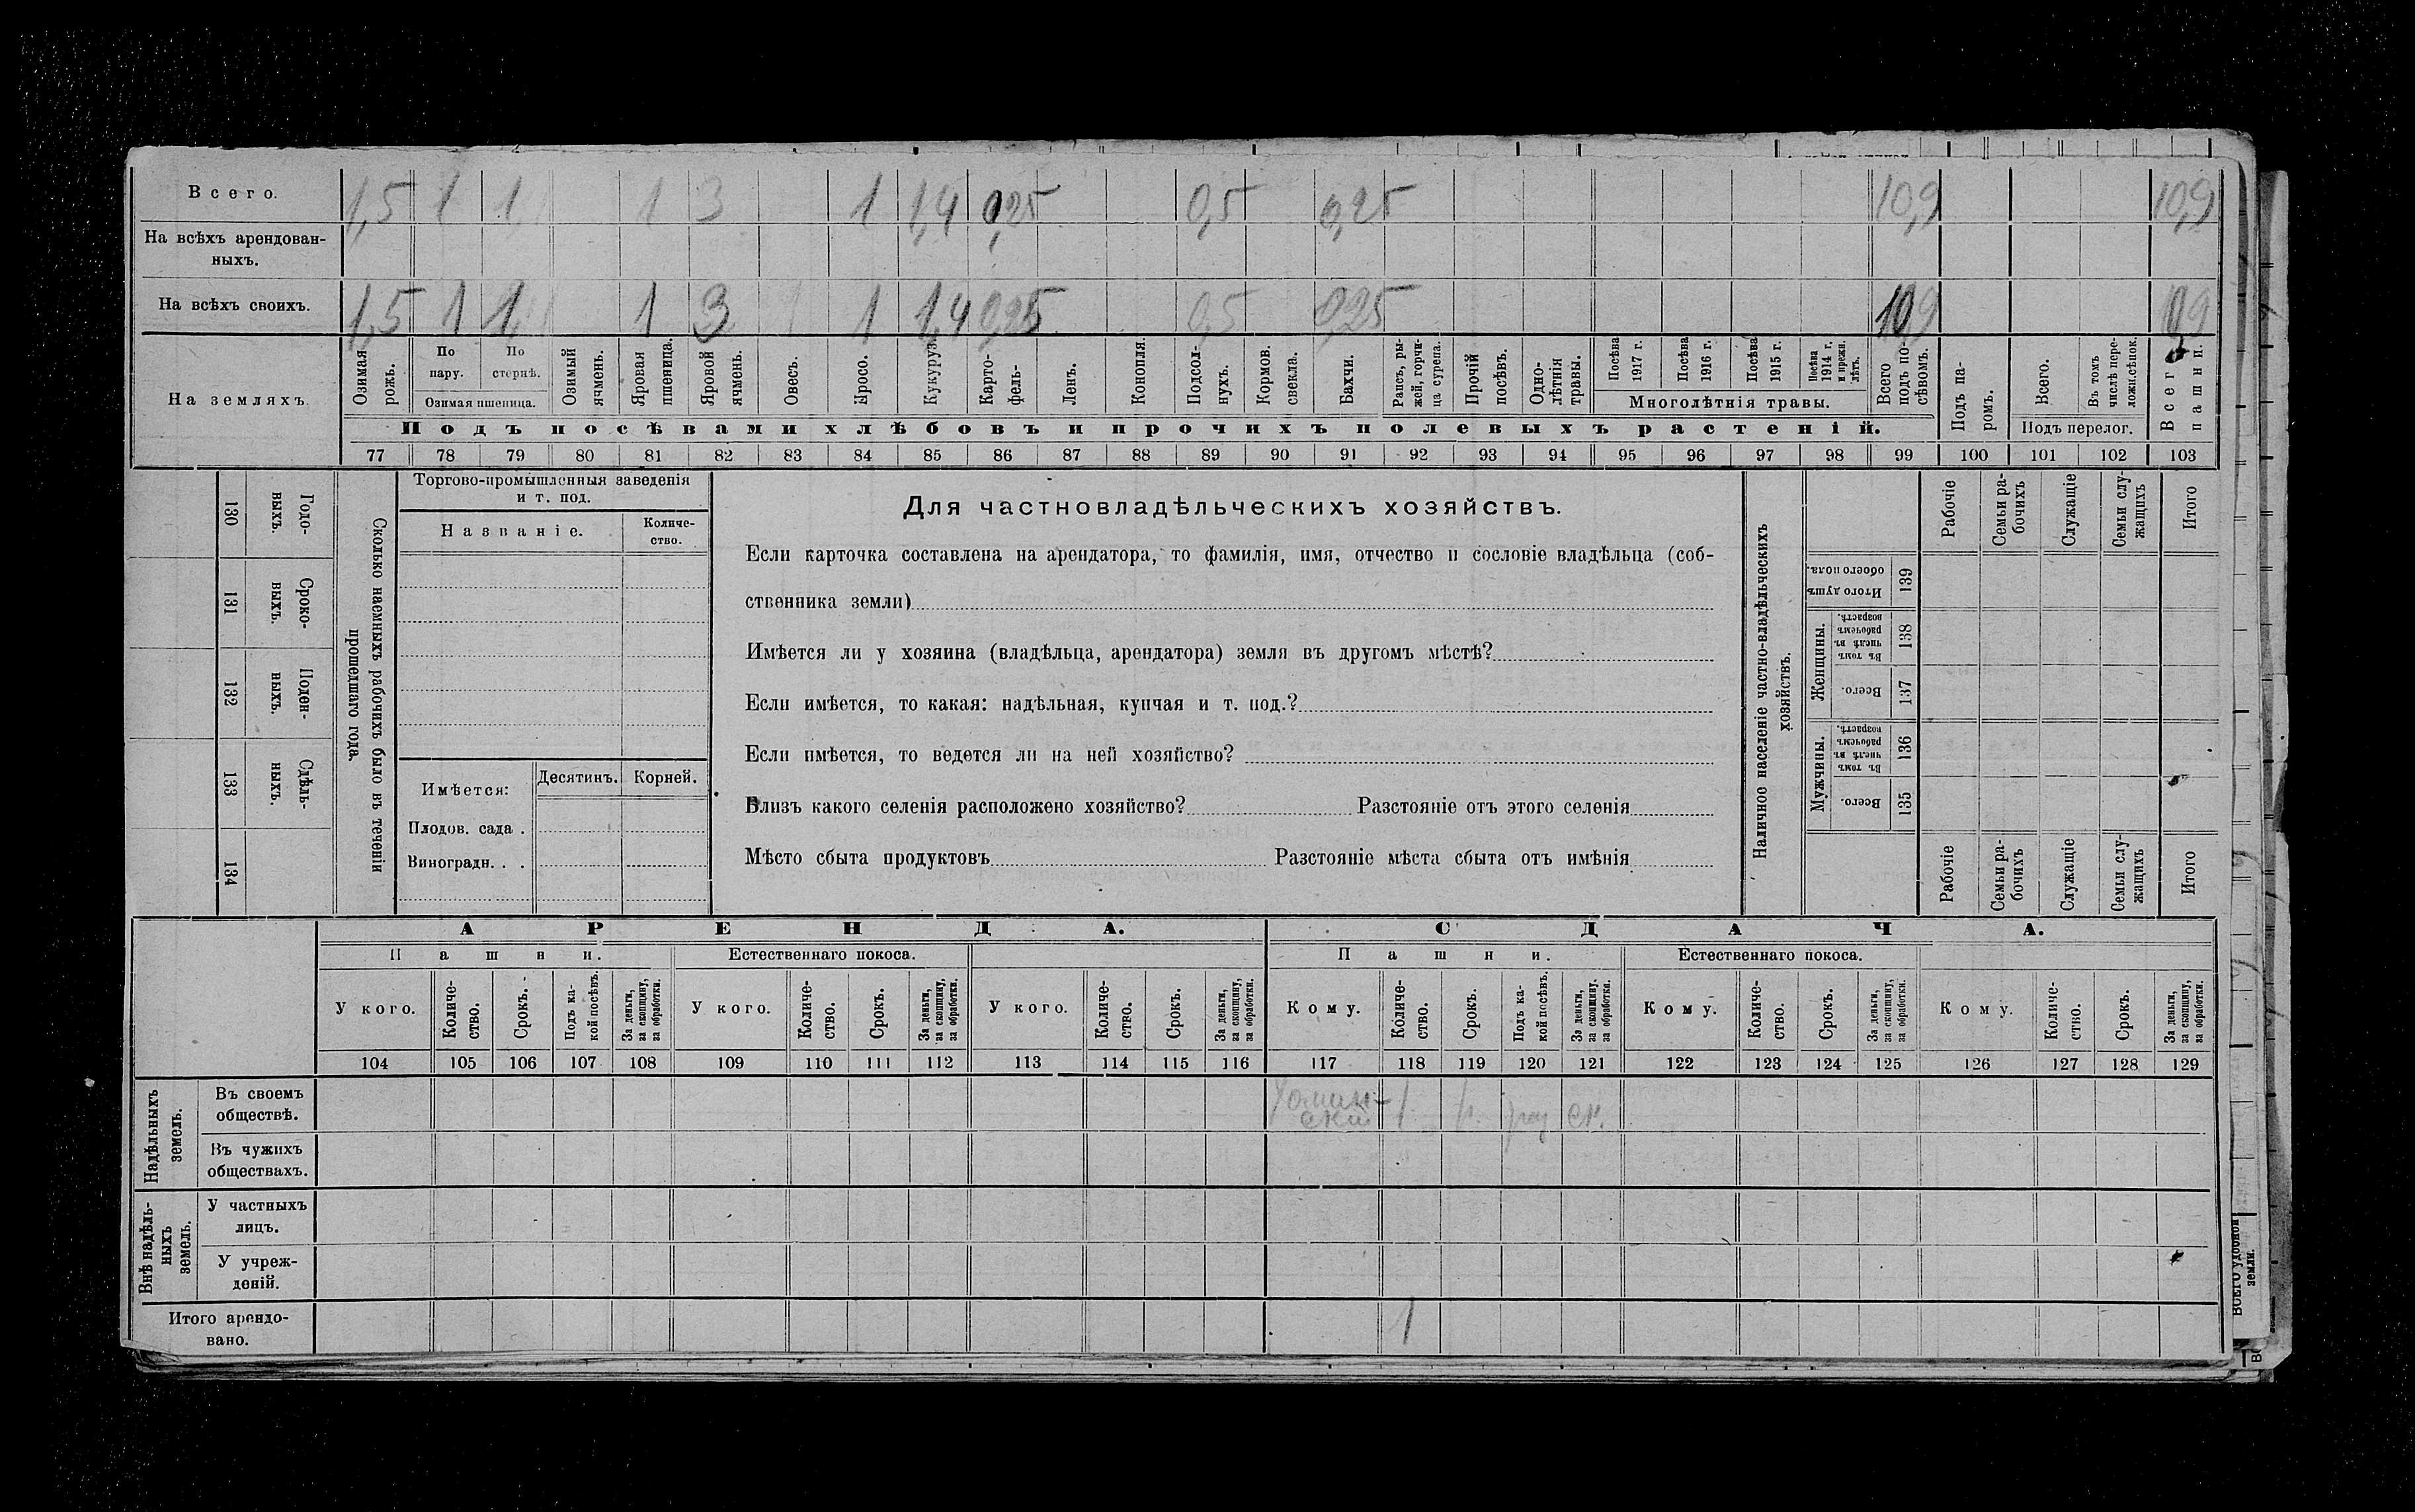 Всего. 1,5 1 1 1 3 1 1,4 0,25 0,5 0,25 10,9 10,9
На всѣхъ арендован-
ныхъ.
На всѣхъ своихъ. 1,5 1 1 1 3 1 1,4 0,25 0,5 0,25 10,9 10,9
На земляхъ.
Озимая рожь.
По пару.
По стернѣ.
Озимая пшеница.
Озимый ячмень.
Яровая пшеница.
Яровой ячмень.
Овесъ.
Просо.
Кукуруз.
Карто-
фель-
Ленъ.
Конопля.
Подсол-
нухъ.
Кормов.
свекла.
Бахчи.
Рапсъ, ры-
жей, горчи-
ца сурепа.
Прочій
посѣвъ.
Одно-
лѣтнія
травы.
Посѣва
1917 г.
Посѣва
1916 г.
Посѣва
1915 г.
Посѣва
1914 г.
и прежн.
лѣтъ.
Многолѣтнія травы.
Всего
подъ по-
сѣвомъ.
Подъ па-
ромъ.
Всего.
Въ томъ
числѣ пере-
ложн.сѣнок.
Подъ перелог.
Всего
пашни.
Подъ посѣвами хлѣбовъ и прочихъ полевыхъ растеній.
77 78 79 80 81 82 83 84 85 86 87 88 89 90 91 92 93 94 95 96 97 98 99 100 101 102 103
130 Годо-
выхъ.
131 Сроко-
ныхъ.
132 Поден-
ныхъ.
133 Сдѣль-
ныхъ.
134
Сколько наемныхъ рабочихъ было въ теченіи
прошедшаго года.
Торгово-промышленныя заведенія
и т. под.
Названіе.
Количе-
ство.
Имѣется:
Десятинъ.
Корней.
Плодов. сада .
Виноградн. . .
Для частновладѣльческихъ хозяйствъ.
Если карточка составлена на арендатора, то фамилія, имя, отчество и сословіе владѣльца (соб-
ственника земли)
Имѣется ли у хозяина (владѣльца, арендатора) земля въ другомъ мѣстѣ?
Если имѣется, то какая: надѣльная, купчая и т. под.?
Если имѣется, то ведется ли на ней хозяйство?
Близъ какого селенія расположено хозяйство? Разстояніе отъ этого селенія
Мѣсто сбыта продуктовъ Разстояніе мѣста сбыта отъ имѣнія
Наличное населеніе частно-владѣльческихъ
хозяйствъ.
Рабочіе
Семьи ра-
бочихъ
Служащіе
Семьи слу-
жащихъ
Итого
Итого душъ
обоего пола.
139
Женщины.
Въ томъ
числѣ въ
рабочемъ
возрастѣ.
138
Всего.
137
Мужчины.
Въ томъ
числѣ въ
рабочемъ
возрастѣ.
136
Всего.
135
Рабочіе
Семьи ра-
бочихъ
Служащіе
Семьи слу-
жащихъ
Итого
АРЕНДА. СДАЧА.
Пашни. Естественнаго покоса. Пашни. Естественнаго покоса.
У кого.
Количе-
ство.
Срокъ.
Подъ ка-
кой посѣвъ.
За деньги,
за скопщину,
за обработки.
У кого.
Количе-
ство.
Срокъ.
За деньги,
за скопщину,
за обработки.
У кого.
Количе-
ство.
Срокъ.
За деньги,
за скопщину,
за обработки.
Кому.
Количе-
ство.
Срокъ.
Подъ ка-
кой посѣвъ.
За деньги,
за скопщину,
за обработки.
Кому.
Количе-
ство.
Срокъ.
За деньги,
за скопщину,
за обработки.
Кому.
Количе-
ство.
Срокъ.
За деньги,
за скопщину,
за обработки.
104 105 106 107 108 109 110 111 112 113 114 115 116 117 118 119 120 121 122 123 124 125 126 127 128 129
Надѣльныхъ
земель.
Въ своемъ
обществѣ.
1 ск.
Въ чужихъ
обществахъ.
Внѣ надѣль-
ныхъ
земель.
У частныхъ
лицъ.
У учреж-
деній.
Итого арендо-
вано.
1
Всего удобной
земли.